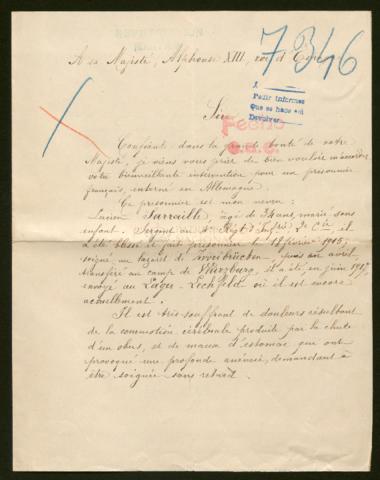 A sa Majesté, Alphonse XIII, roi d'
7346
A
Pedir informes
Que se hace así
Devolver
Fecho
Sire
Confiant dans la grande bonté de votre
Majesté, je viens vous prier de bien vouloir m'accorder
votre bienveillante intervention pour un prisonnier
français, interné en Allemagne.
Ce prisonnier est mon neveu:
Lucien Sarraille, âgé de 34 ans, marié sans
enfant. Sergent au Régt d'Infrie Cie, et
a été blessé et fait prisonnier le 18 février 1915;
soigné au lazaret de Zweibrücken, puis en avril,
transféré au camp de Würzburg, il a été, en juin 1917,
envoyé au Lager-Lechfeld où il est encore
actuellement.
Il est très souffrant de douleurs résultant
de la commotion cérébrale produite par la chute
d'un obus, et de maux d'estomac qui ont
provoqué une profonde anémie, demandant à
être soignée sans retard.